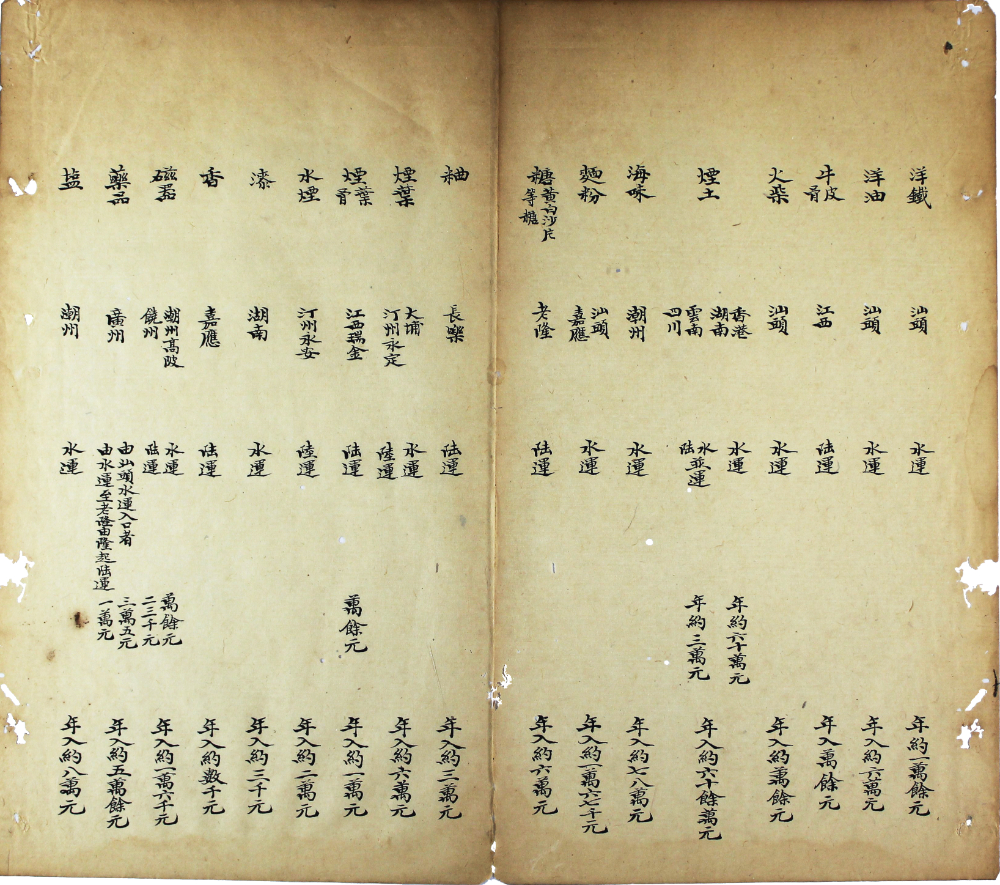 洋鐵 汕頭 水運 年約一萬餘元
洋油 汕頭 水運 年入約六萬元
牛皮骨 江西 陸運 年入萬餘元
火柴 汕頭 水運 年入約萬餘元
煙土 香港 湖南 雲南 四川 水運 水陸並運 年約六十萬元 年約三萬元 年入約六十餘萬元
海味 潮州 水運 年入約七八萬元
麵粉 汕頭 嘉應 水運 年入約一萬六七千元
糖黃白沙片等糖 老隆 陸運 年入約六萬元
粬 長樂 陸運 年入約三萬元
煙葉 大埔 汀州永定 水運 陸運 年入約六萬元
煙葉骨 江西瑞金 陸運 萬餘元 年入約一萬元
水煙 汀州永安 陸運 年入約二萬元
漆 湖南 水運 年入約三千元
香 嘉應 陸運 年入約數千元
磁器 潮州高陂 饒州 水運 陸運 萬餘元 二三千元 年入約一萬六千元
藥品 廣州 由汕頭水運入口者 三萬五元 由水運至老隆由隆起陸運 一萬元 年入約五萬餘元
塩 潮州 水運 年入約八萬元